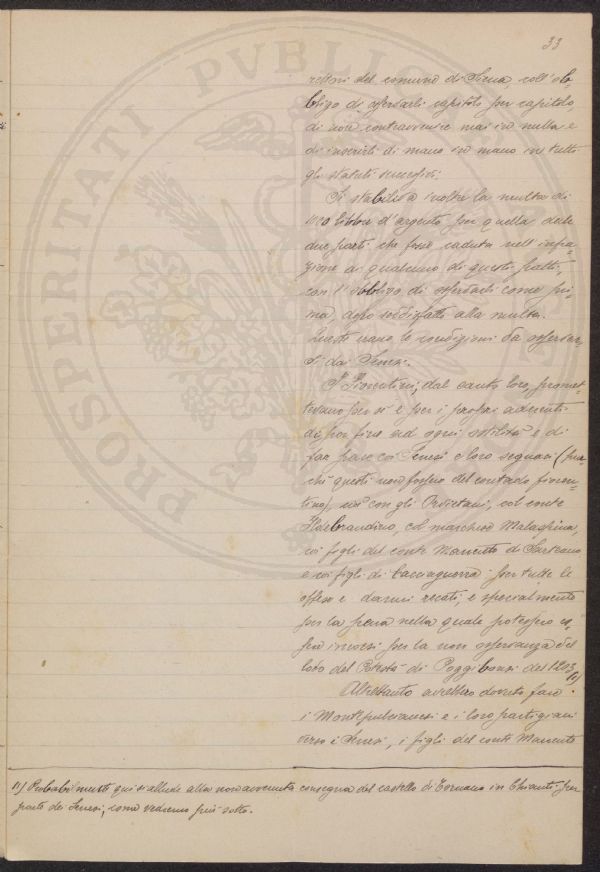 33
PROSPERITATI PVBLICAE
rettori del comune di Siena, coll'ob-
bligo di osservarli capitolo per capitolo
di non contravvenire mai in nulla e
di inserirli di mano in mano in tutti
gli statuti successivi.
Si stabilisce inoltre la multa di
1000 libbre d'argento per quella delle
due parti che fosse caduta nell'infra-
zione di qualcuno di questi patti,
con l'obbligo di osservarli come pri-
ma, dopo soddisfatto alla multa.
Queste erano le condizioni da osservar-
si dai Senesi.
I Fiorentini, dal canto loro, promet-
tevano per sé e per i propri aderenti
di por fine ad ogni ostilità e di
far pace coi Senesi e loro seguaci (pur-
ché questi non fossero del contado fioren-
tino), con gli Orvietani, col conte
Ildebrandino, col marchese Malaspina,
coi figli del conte Manente di Sarteano
e coi figli di Cacciaguerra per tutte le
offese e danni recati, e specialmente
per la pena nella quale potessero es-
sere incorsi per la non osservanza del
lodo del Potestà di Poggibonsi del 1203 (1)
Altrettanto avrebbero dovuto fare
i Montepulcianesi e i loro partigiani
verso i Senesi, i figli del conte Manente
(1) Probabilmente qui si allude alla non avvenuta consegna del castello di Tornano in Chianti per
parte dei Senesi, come vedremo più sotto.